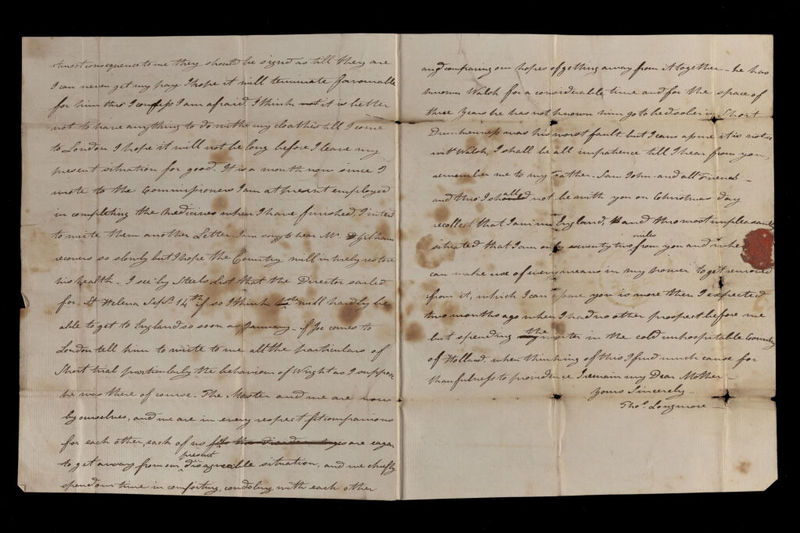 utmost consequence to me they should be signed as till they are
I can never get my pay I hope it will terminate favourable
for him tho I confess I am afraid. I think it is better
not to have anything to do with my cloaths till I come
to London I hope it will not be long before I leave my
present situation for good. It is a month now since I
wrote to the Commissioners I am at present employed
in completing the Medicines when I have finished, I intend
to write them another Letter. I am sorry to hear Mr.
recovers so slowly but I hope the Country will intirely restore
his health. I see by Steels List that the Director sailed
for St Helena Sept. 14th if so I think will hardly be
able to get to England so soon as January. if Joe comes to
London tell him to write to me all the particulars of
Short trial particularly the behaviour of Wright as I suppose
he was there of course. The Master and me are now
by ourselves, and we are in every respect fit companions
for each other, each of us are eager
to get away from our present disagreeable situation, and we chiefly
spend our time in comforting, condoling with each other
and comparing our hopes of getting away from it together – he has
known Walsh for a considerable time and for the space of
three Years he has not known him go to bed sober in Short
Drunkenness was his worst fault but I can assure it is not so
with Walsh, I shall be all impatience till I hear from you,
remember me to my Father. Sam John and all Friends –
and tho I shall not be with you on Christmas day
recollect that I am in England, and tho most unpleasantly
situated that I am only seventy two miles from you and
can make use of every means in my power to get removed
from it, which I can assure you is more then I expected
two months ago when I had no other prospect before me
but spending the winter in the cold inhospitable Country
of Holland. when thinking of this I find much cause for
thankfulness to providence I remain my Dear Mother –
Yours Sincerely
Thos. Longmore